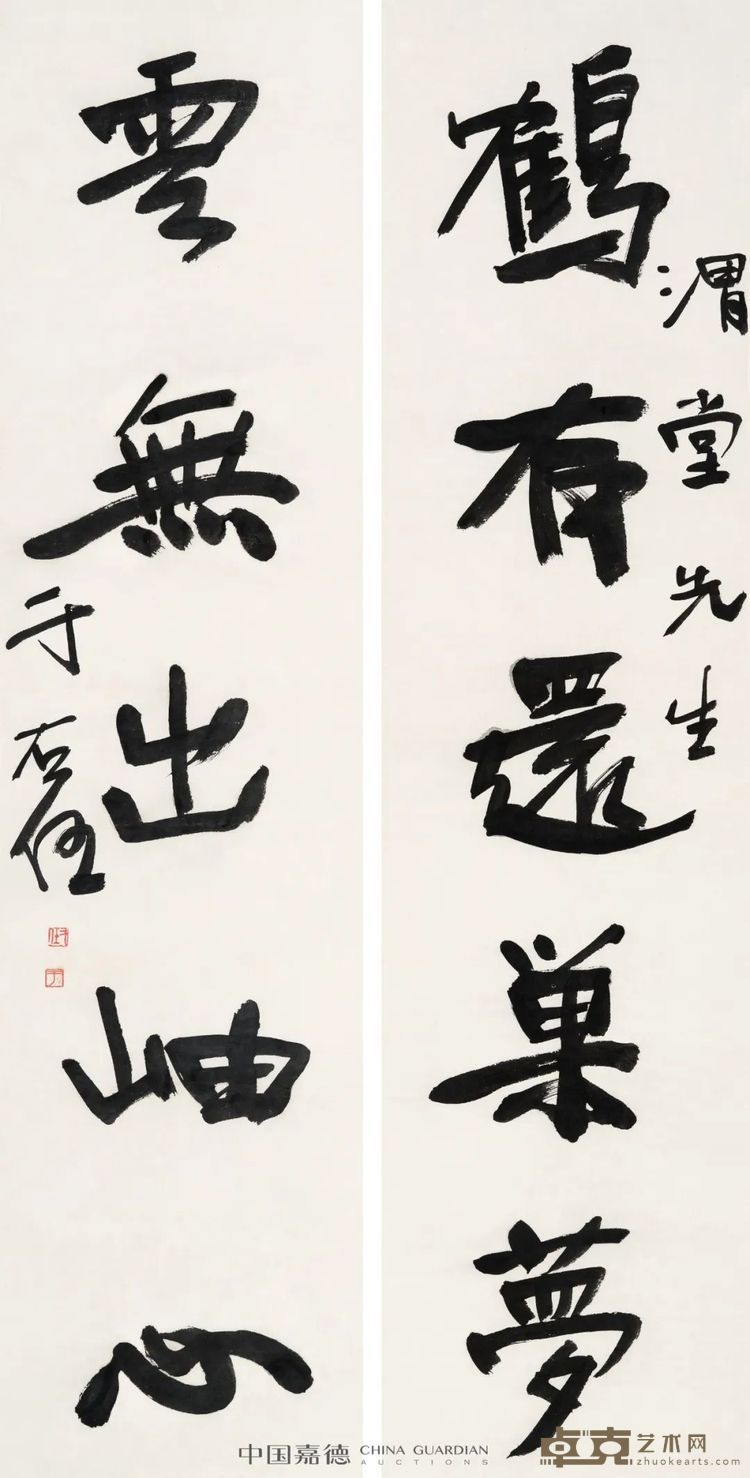 鶴有還巢夢
渭堂先生
雲無出岫心
于右任
中国嘉德 CHINA GUARDIAN
AUCTIONS
卓克艺术网
zhuokearts.com